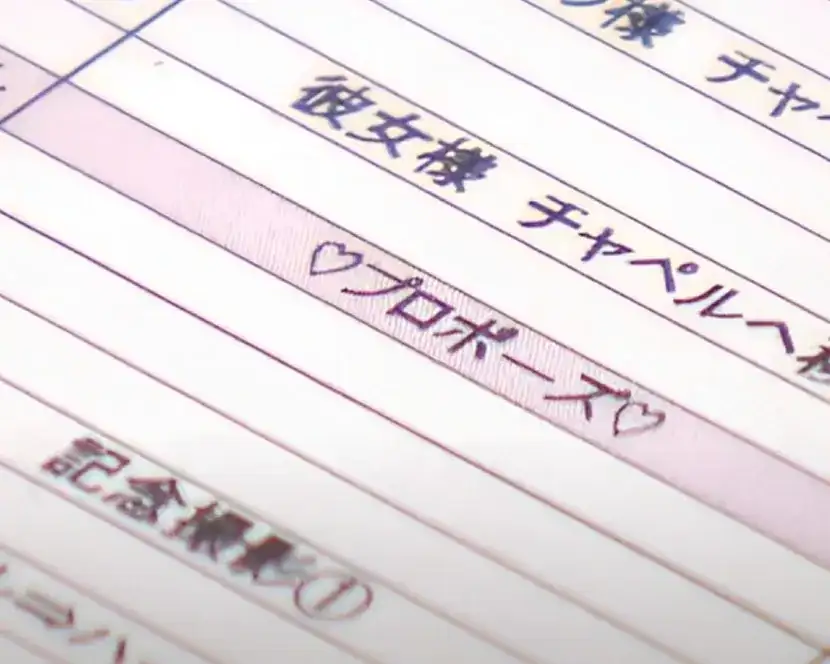 様 チャ
彼女様 チャペルへ移
♡プロポーズ♡
記念撮影①